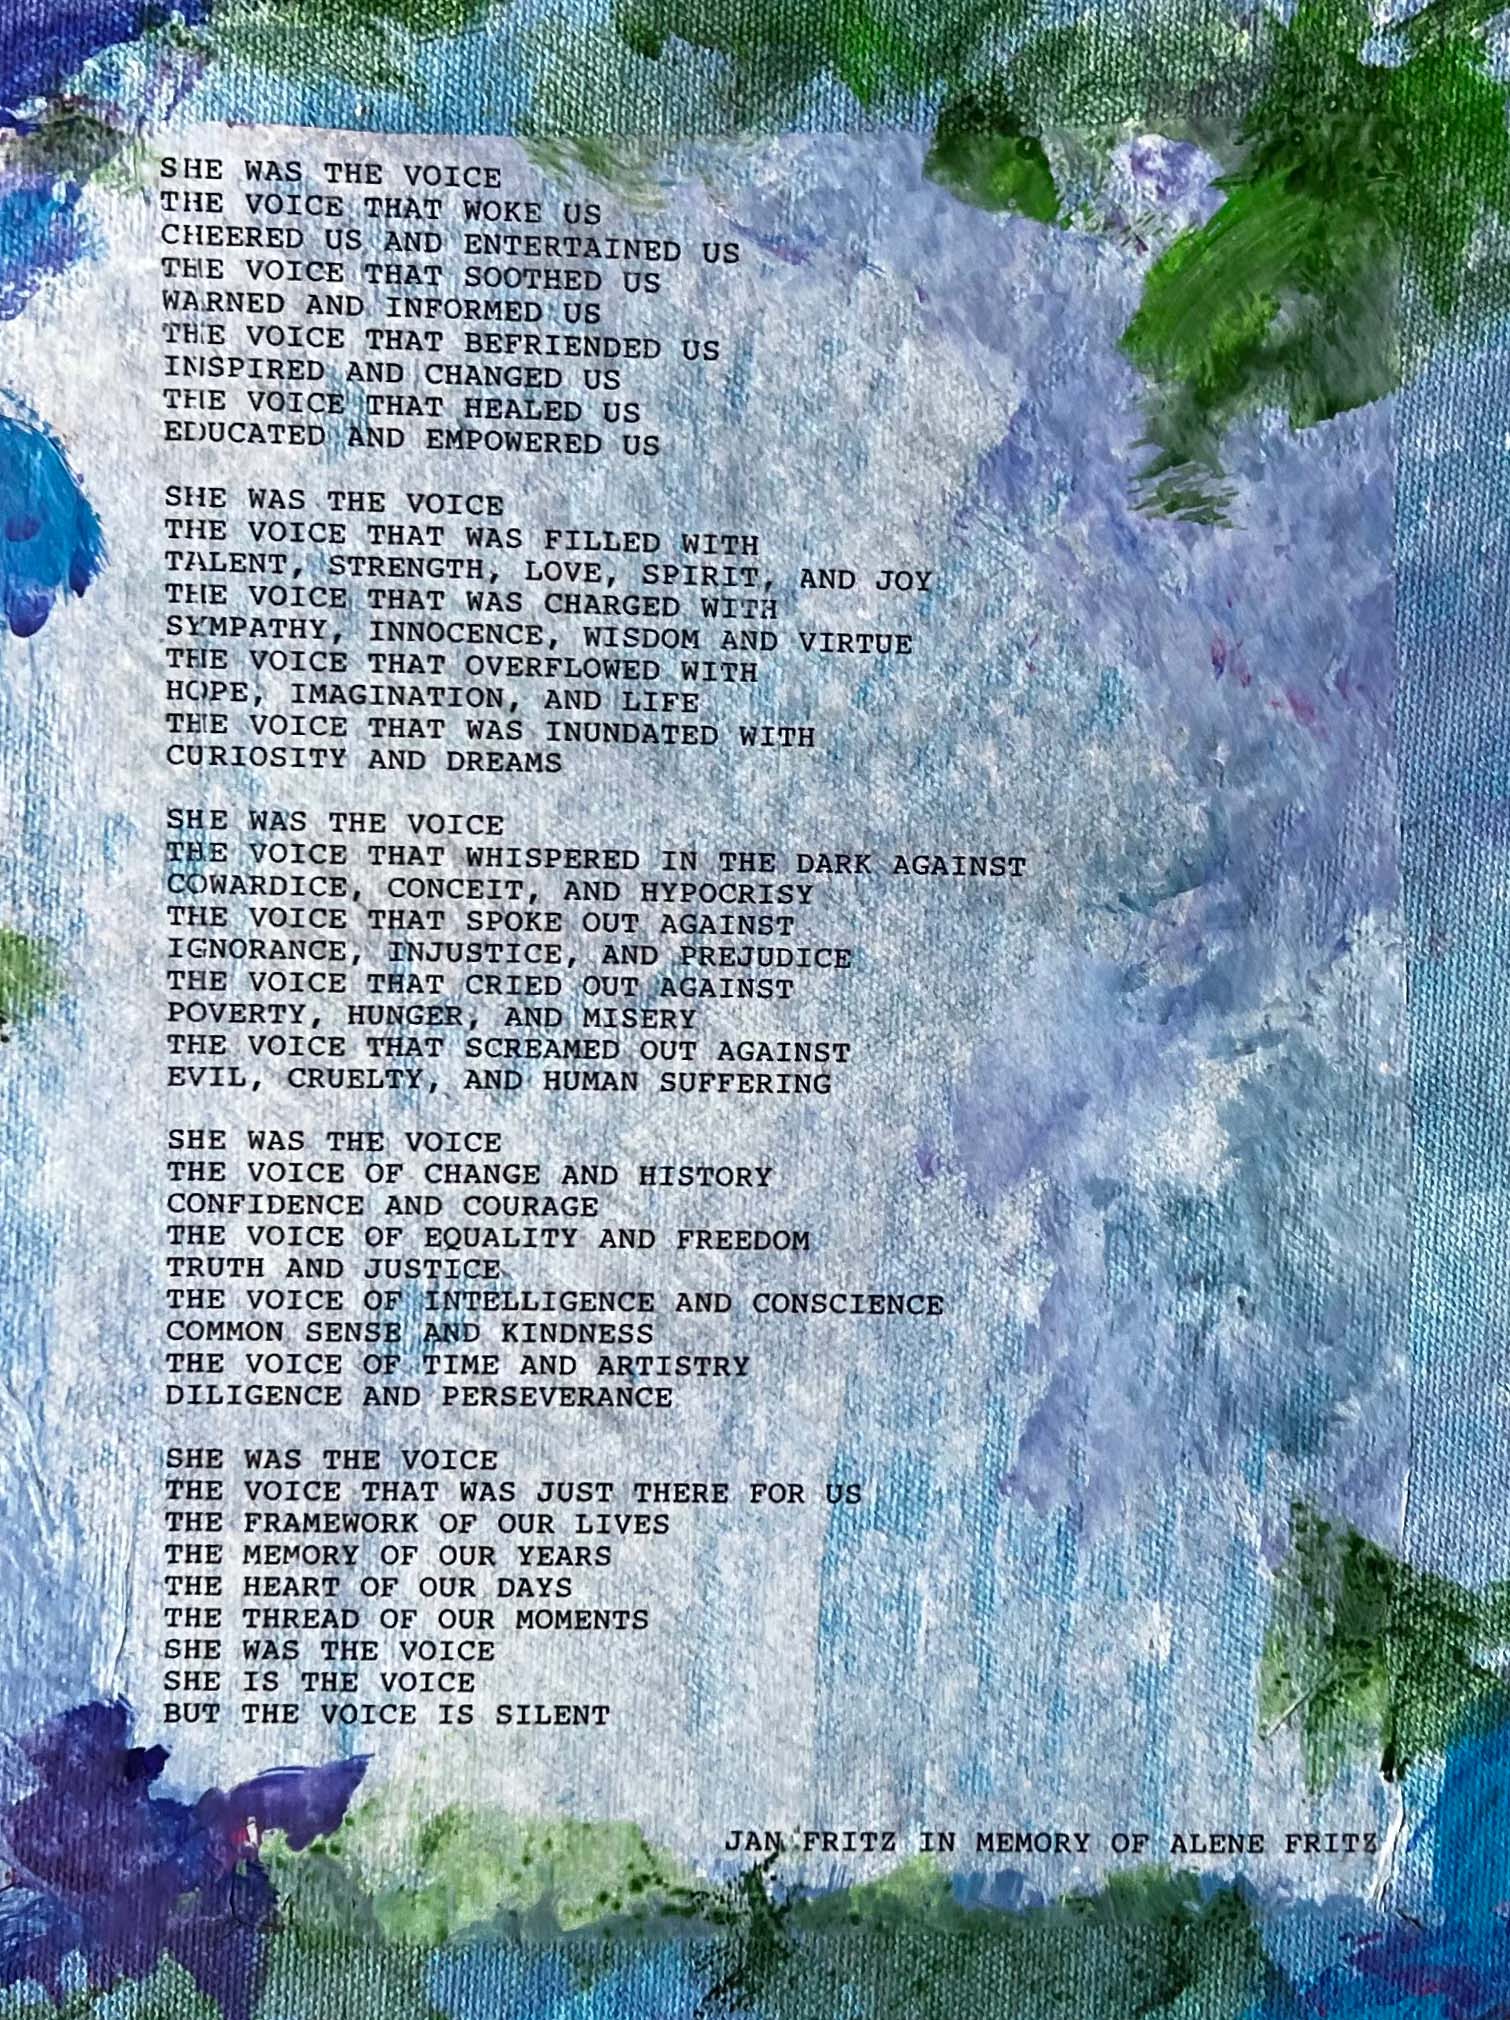 SHE WAS THE VOICE
THE VOICE THAT WOKE US
CHEERED US AND ENTERTAINED US
THE VOICE THAT SOOTHED US
WARNED AND INFORMED US
THE VOICE THAT BEFRIENDED US
INSPIRED AND CHANGED US
THE VOICE THAT HEALED US
EDUCATED AND EMPOWERED US
SHE WAS THE VOICE
THE VOICE THAT WAS FILLED WITH
TALENT, STRENGTH, LOVE, SPIRIT, AND JOY
THE VOICE THAT WAS CHARGED WITH
SYMPATHY, INNOCENCE, WISDOM AND VIRTUE
THE VOICE THAT OVERFLOWED WITH
HOPE, IMAGINATION, AND LIFE
THE VOICE THAT WAS INUNDATED WITH
CURIOSITY AND DREAMS
SHE WAS THE VOICE
THE VOICE THAT WHISPERED IN THE DARK AGAINST
COWARDICE, CONCEIT, AND HYPOCRISY
THE VOICE THAT SPOKE OUT AGAINST
IGNORANCE, INJUSTICE, AND PREJUDICE
THE VOICE THAT CRIED OUT AGAINST
POVERTY, HUNGER, AND MISERY
THE VOICE THAT SCREAMED OUT AGAINST
EVIL, CRUELTY, AND HUMAN SUFFERING
SHE WAS THE VOICE
THE VOICE OF CHANGE AND HISTORY
CONFIDENCE AND COURAGE
THE VOICE OF EQUALITY AND FREEDOM
TRUTH AND JUSTICE
THE VOICE OF INTELLIGENCE AND CONSCIENCE
COMMON SENSE AND KINDNESS
THE VOICE OF TIME AND ARTISTRY
DILIGENCE AND PERSEVERANCE
SHE WAS THE VOICE
THE VOICE THAT WAS JUST THERE FOR US
THE FRAMEWORK OF OUR LIVES
THE MEMORY OF OUR YEARS
THE HEART OF OUR DAYS
THE THREAD OF OUR MOMENTS
SHE WAS THE VOICE
SHE IS THE VOICE
BUT THE VOICE IS SILENT
JAN FRITZ IN MEMORY OF ALENE FRITZ